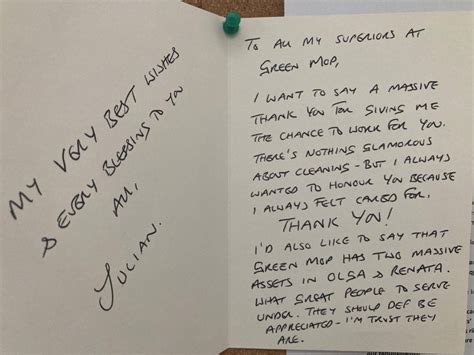 MY VERY BEST WISHES
& EVERY BLESSING TO YOU
ALL,
JULIAN.
TO ALL MY SUPERIORS AT
GREEN MOP,
I WANT TO SAY A MASSIVE
THANK YOU FOR GIVING ME
THE CHANCE TO WORK FOR YOU.
THERE'S NOTHING GLAMOROUS
ABOUT CLEANING - BUT I ALWAYS
WANTED TO HONOUR YOU BECAUSE
I ALWAYS FELT CARED FOR.
THANK YOU!
I'D ALSO LIKE TO SAY THAT
GREEN MOP HAS TWO MASSIVE
ASSETS IN OLGA & RENATA.
WHAT GREAT PEOPLE TO SERVE
UNDER. THEY SHOULD DEF BE
APPRECIATED - I'M TRUST THEY
ARE.